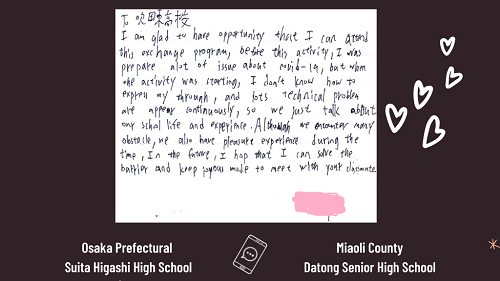 To 吹田東高校
I am glad to have opportunity that I can attend
this exchange program, before this activity, I was
prepare alot of issue about covid-19, but when
the activity was starting, I don't know how to
express my through, and lots technical problem
are appear continuously, so we just talk about
our schol life and experience. Although we encounter many
obstacle, we also have pleasure experience during the
time, In the future, I hop that I can solve the
barrier and keep joyous mode to meet with your classmate
Osaka Prefectural
Suita Higashi High School
Miaoli County
Datong Senior High School